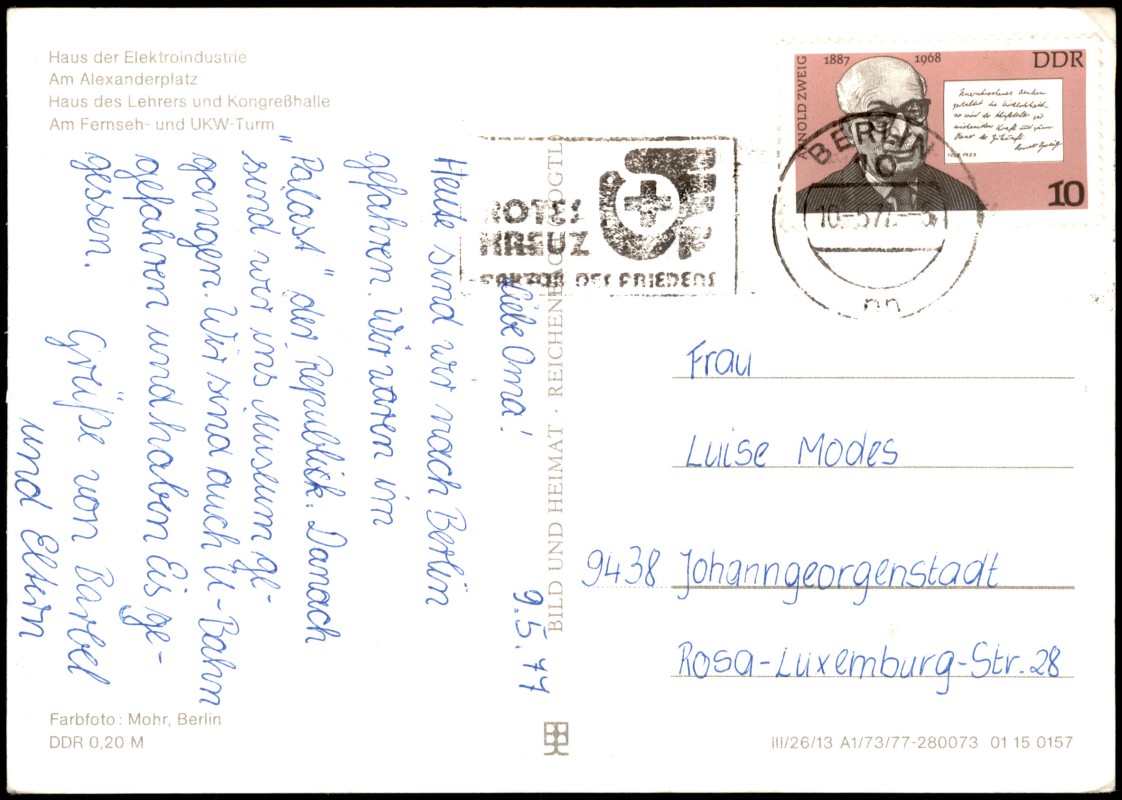 Haus der Elektroindustrie
Am Alexanderplatz
Haus des Lehrers und Kongreßhalle
Am Fernseh- und UKW-Turm
9.5.77
Liebe Oma!
Heute sind wir nach Berlin
gefahren. Wir waren im
"Palast" der Republik. Danach
sind wir ins Museum ge-
gangen. Wir sind auch U-Bahn
gefahren und haben Eis ge-
gessen.
Grüße von Barbel
und Eltern
Farbfoto: Mohr, Berlin
DDR 0,20 M
BILD UND HEIMAT · REICHENBACH
ROTES
KREUZ
FAKTOR DES FRIEDENS
ARNOLD ZWEIG
1887 1968
DDR
10
BERLIN
Frau
Luise Modes
9438 Johanngeorgenstadt
Rosa-Luxemburg-Str. 28
III/26/13 A1/73/77-280073 01 15 0157